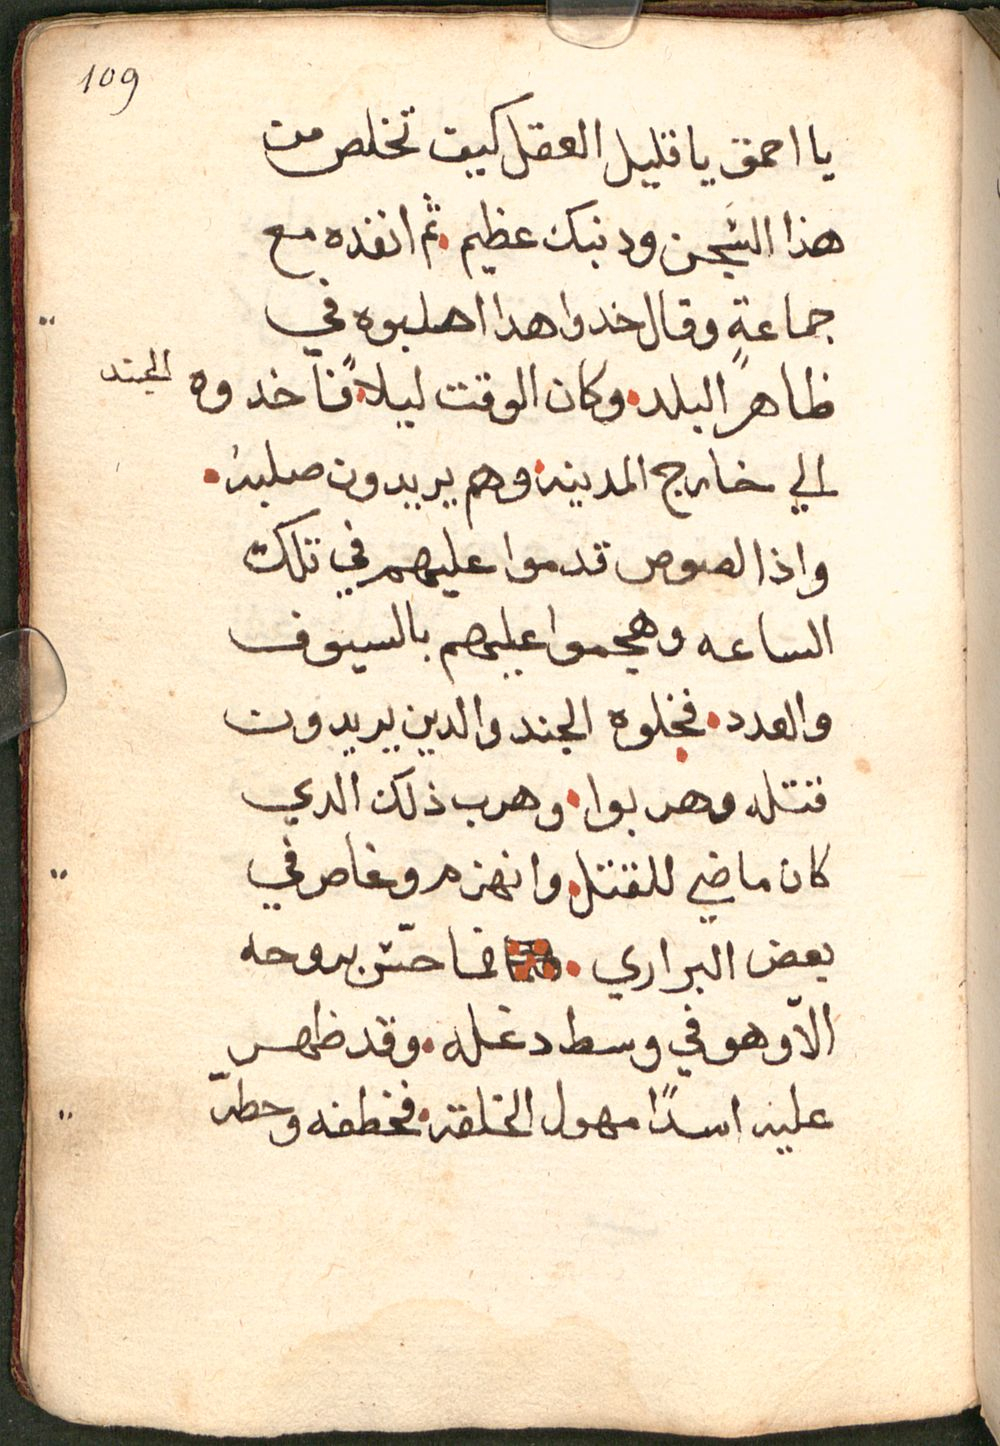 109
يا احمق يا قليل العقل كيف تخلص من
هذا السَجن ودنبك عظيم. ثم انفده مع
جماعةٍ وقال خدوا هدا اصلبوه في
ظاهر البلد. وكان الوقت ليلاً. فاخدوه
الجند
الي خارج المدينة. وهم يريدون صلبه.
واذا لصوص قدموا عليهم في تلك
الساعه وهجموا عليهم بالسيوف
والعدد. فخلوه الجند والدين يريدون
قتله وهربوا. وهرب ذلك الدي
كان ماضي للقتل. وانهزم وغاص في
بعض البراري. فما حسّ بروحه
الاّ وهو في وسط دغله. وقد ظهر
عليه اسدًا مهول الخلقة. فخطفه وحطّه